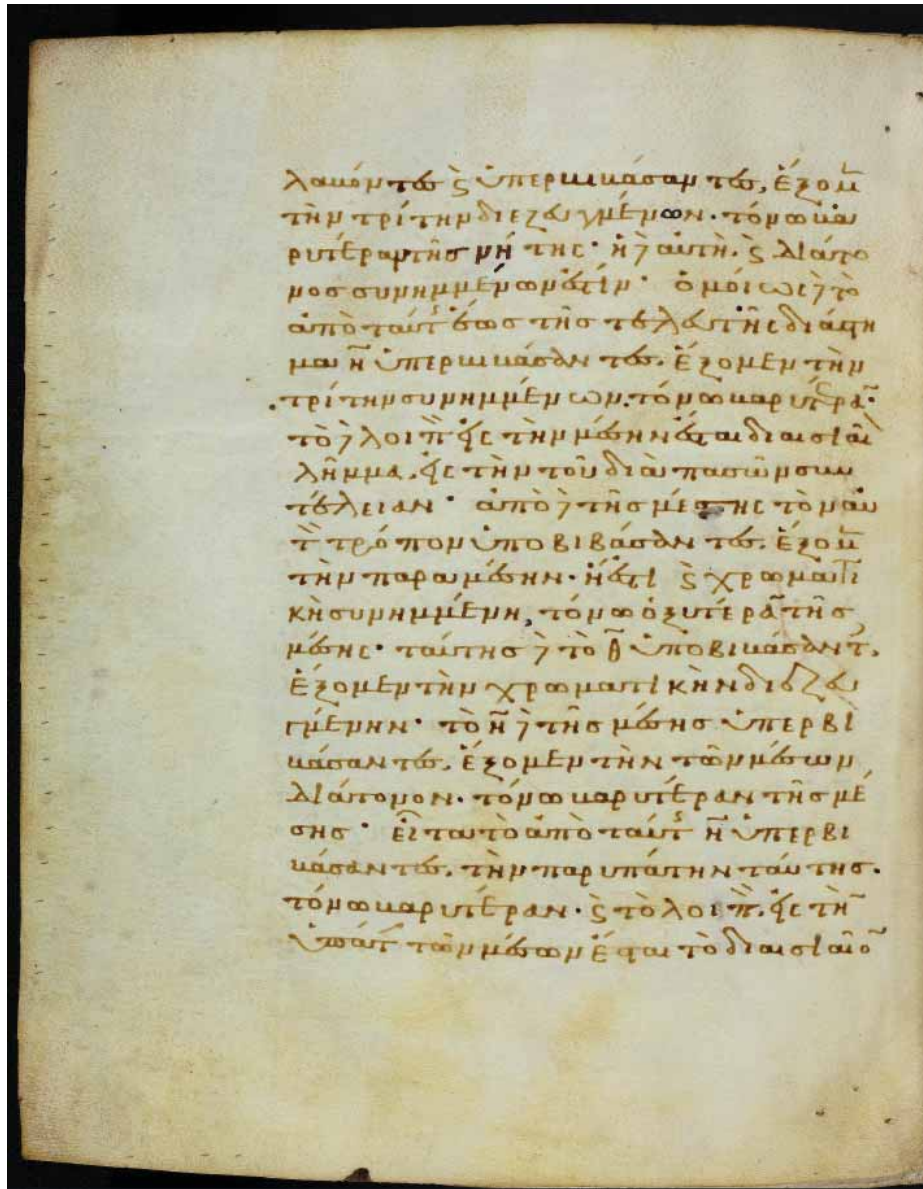 λαμόντες ϛ ὑπερβιβάσαντες, ἔχομ̅
τὴν τρίτην διεζευγμένων· τόνω βα
ρυτέραν τῆς νήτης· ἡ δ αὐτὴ ϛ διάτο
νος συνημμένων ἐστίν· ὁμοίως δ τὸ
ἀπὸ ταύτ ἕως τῆς τελευτῆς διάστη
μα η̅ ὑπερβιβάσαντες, ἔχομεν τὴν
τρίτην συνημμένων, τόνω βαρυτέρα̅·
τὸ δ λοιπ εἰς τὴν μέσην ἔσται διὰ
λῆμμα, εἰς τὴν τοῦ διὰ πασῶν συν
τέλειαν· ἀπὸ δ τῆς μέσης τὸν αὐ
τ τρόπον ὑποβιβάσαντες, ἔχομ̅
τὴν παραμέσην· ἥ ἐστι ϛ χρωματι
κὴ συνημμένη, τόνω ὀξυτέρα̅ τῆς
μέσης· ταύτης δ τὸ θ̅ ὑποβιβάσαντ,
ἔχομεν τὴν χρωματικὴν διεζευ
γμένην· τὸ η̅ δ τῆς μέσης ὑπερβι
βάσαντες, ἔχομεν τὴν τῶν μέσων
διάτονον· τόνω βαρυτέραν τῆς μέ
σης· εἶτα τὸ ἀπὸ ταύτ η̅ ὑπερβι
βάσαντες, τὴν παρυπάτην ταύτης·
τόνω βαρυτέραν· ϛ τὸ λοιπ, εἰς τὴ̅
ὑπάτ τῶν μέσων ἔσται τὸ